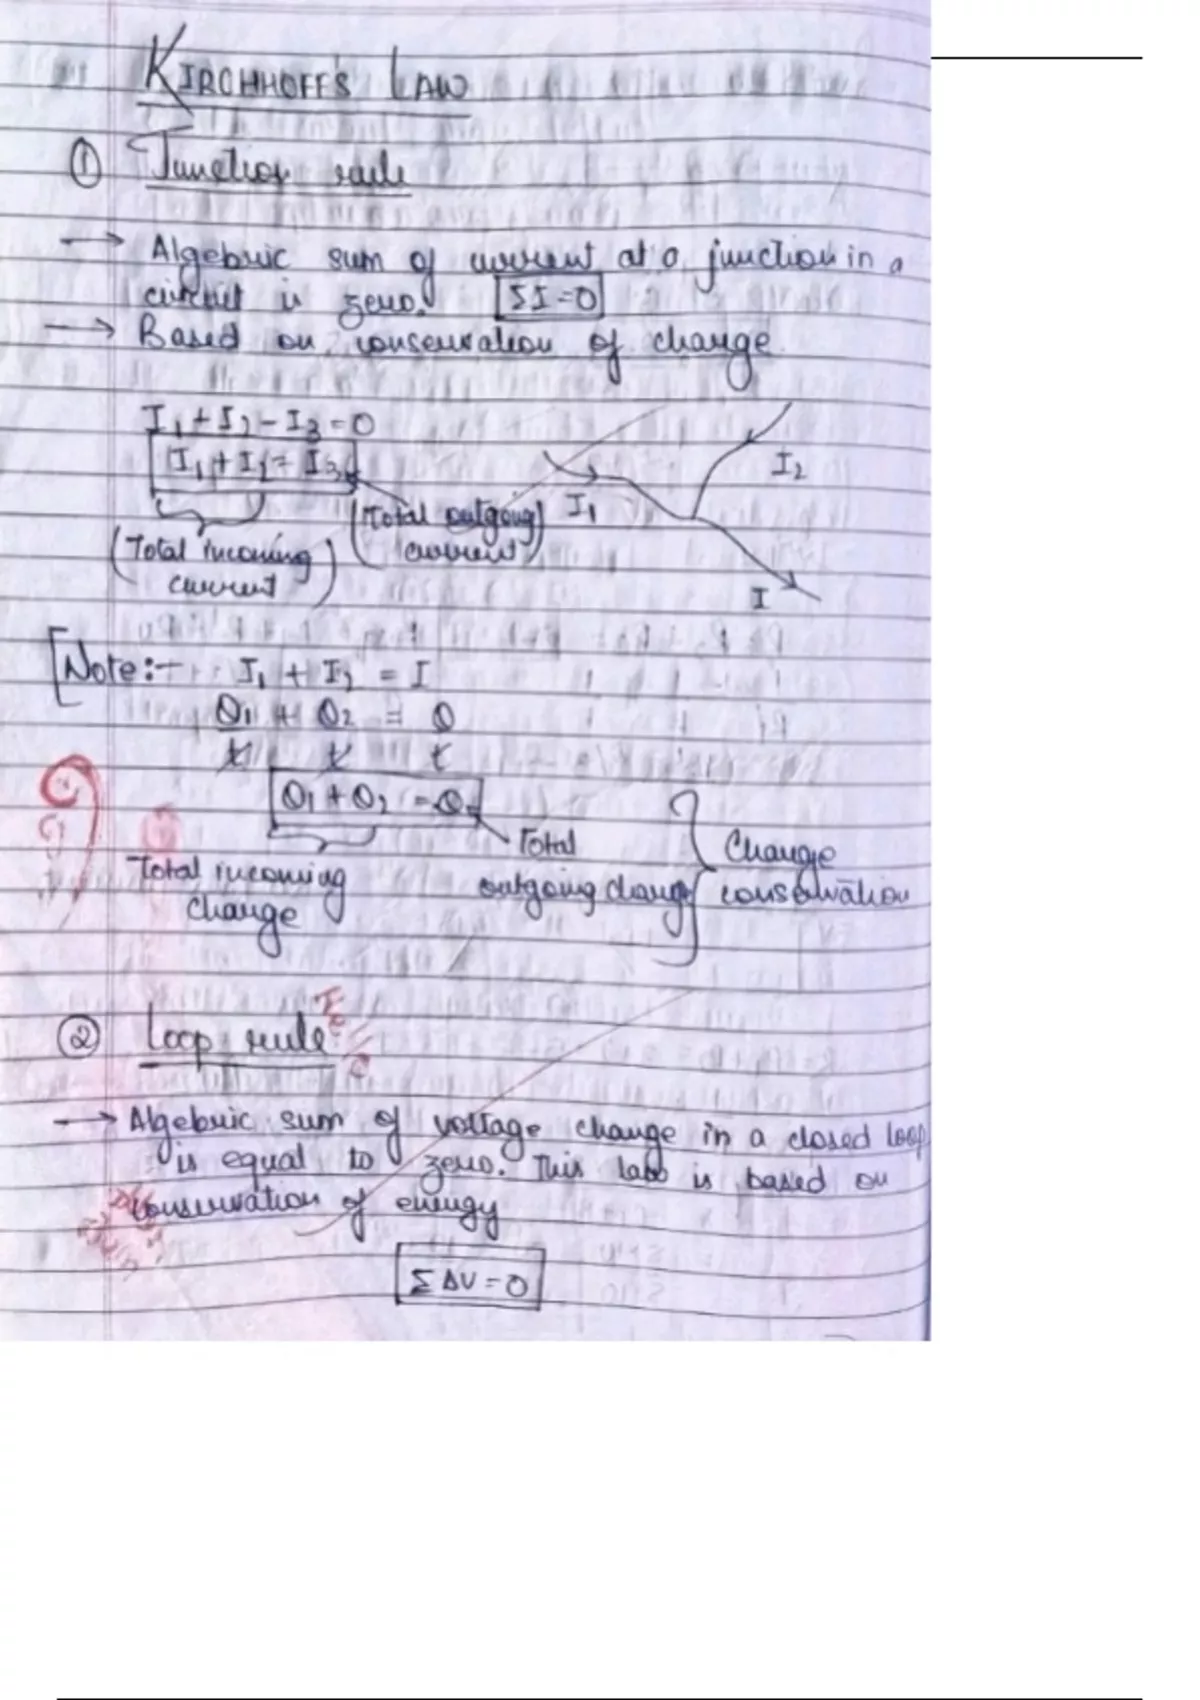 KIRCHHOFF'S LAW
① Junction rule
→ Algebric sum of current at a junction in a
circuit is zero. ΣI=0
→ Based on conservation of charge
I₁+I₂-I₃=0
I₁+I₂=I₃
I₂
I₁
(Total outgoing
current)
(Total incoming
current)
I
[Note:- I₁ + I₂ = I
Q₁ + Q₂ = Q
t t t
Q₁+Q₂ = Q
Total
outgoing charge
Total incoming
charge
Charge
conservation
② Loop rule
→ Algebric sum of voltage change in a closed loop
is equal to zero. This law is based on
conservation of energy
ΣΔV=0